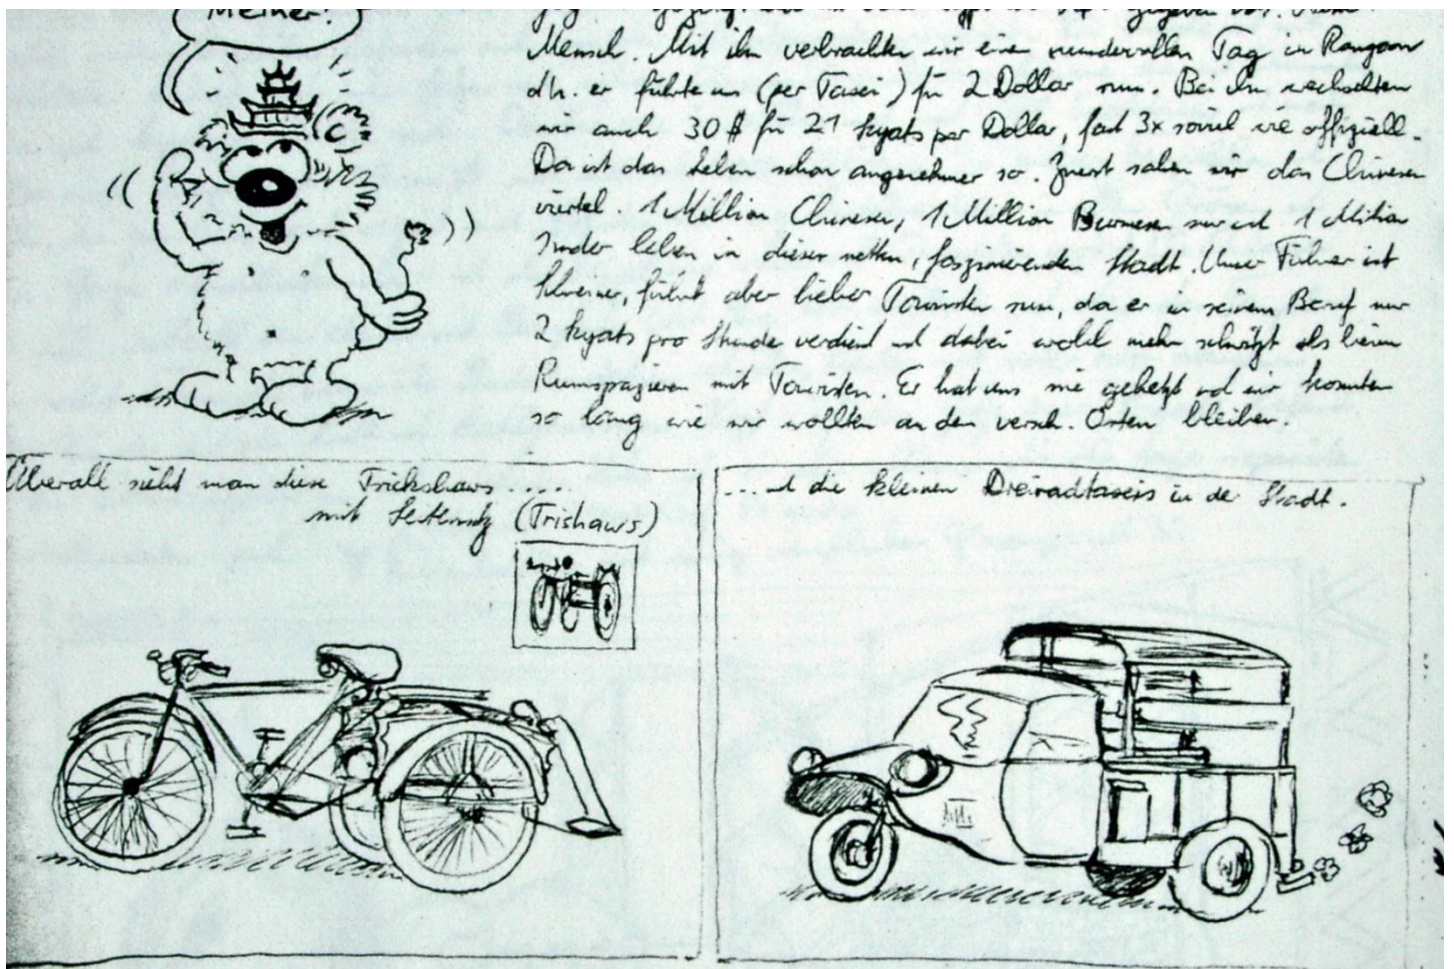 Meiner!
Mensch. Mit ihm verbrachten wir einen wundervollen Tag in Rangoon
dh. er führte uns (per Taxi) für 2 Dollar rum. Bei ihm wechselten
wir auch 30 $ für 21 kyats per Dollar, fast 3x soviel wie offiziell.
Da ist das Leben schon angenehmer so. Zuerst sahen wir das Chinesen
viertel. 1 Million Chinesen, 1 Million Burmesen und 1 Million
Inder leben in dieser netten, faszinierenden Stadt. Unser Führer ist
führt aber lieber Touristen rum, da er in seinem Beruf nur
2 kyats pro Stunde verdient und dabei wohl mehr schwitzt als beim
Rumspazieren mit Touristen. Er hat uns nie gehetzt und wir konnten
so lang wie wir wollten an den versch. Orten bleiben.
Überall sieht man diese Trickshaws.....
mit (Trishaws)
...d die kleinen Dreiradtaxis in der Stadt.